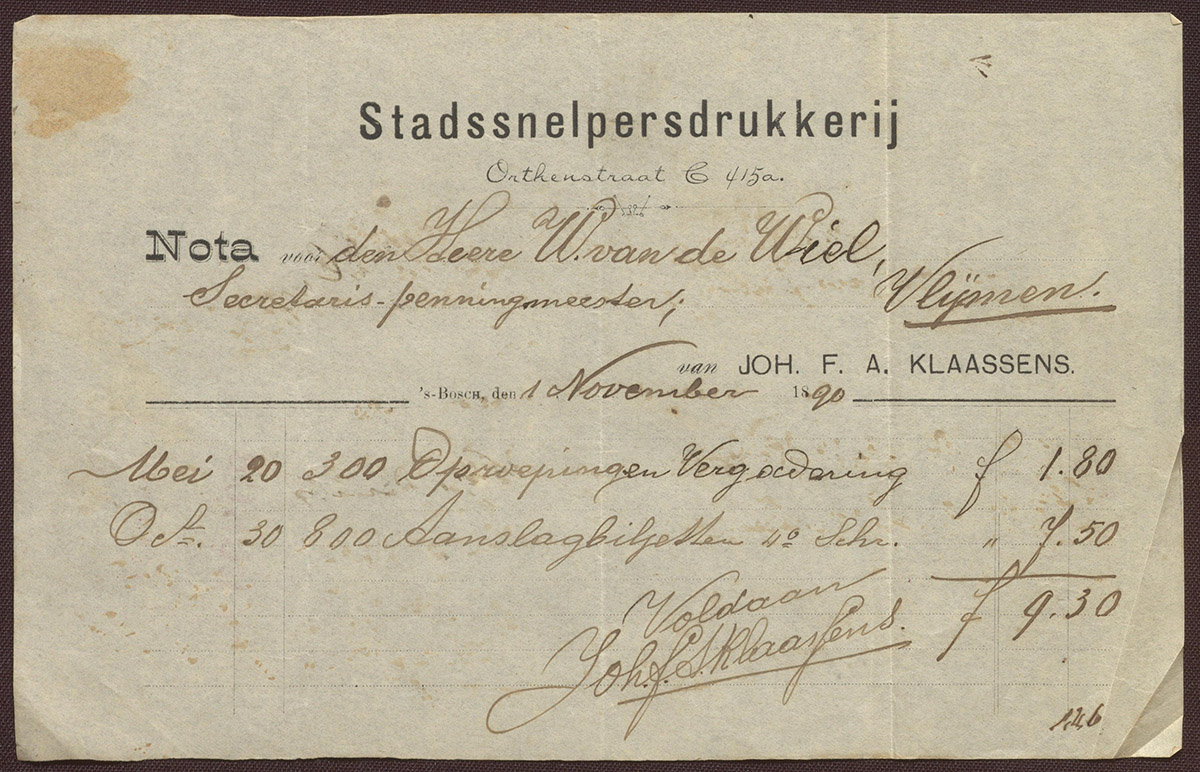 Stadssnelpersdrukkerij
Orthenstraat C 415a.
Nota voor den Heere W. van de Wiel,
Secretaris-penningmeester, Vlijmen.
van JOH. F. A. KLAASSENS.
's-Bosch, den 1 November 1890
Mei 20 300 Oproepingen Vergadering f 1.80
Oct. 30 800 Aanslagbiljetten 4º Schr. " 7.50
Voldaan f 9.30
Joh. F. A. Klaassens.